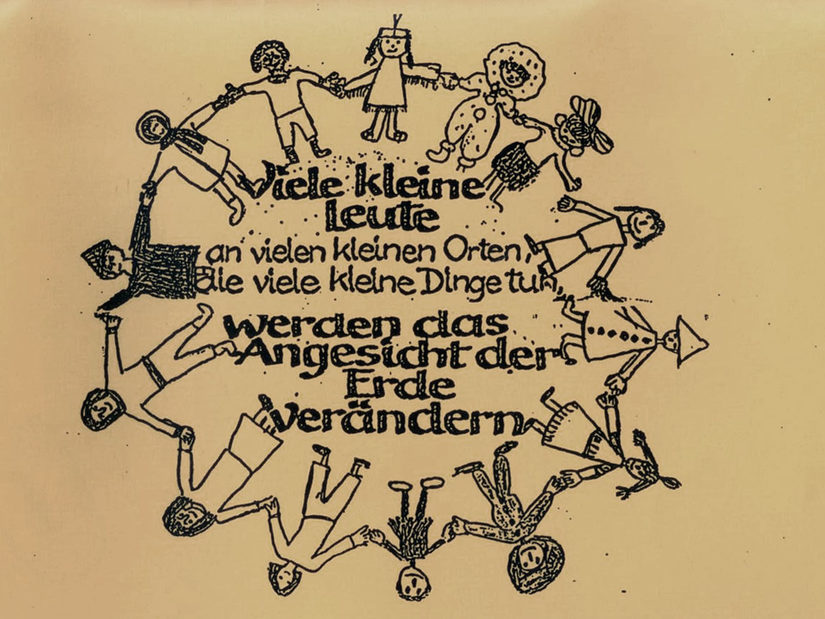 Viele kleine
Leute
an vielen kleinen Orten,
die viele kleine Dinge tun,
werden das
Angesicht der
Erde
verändern